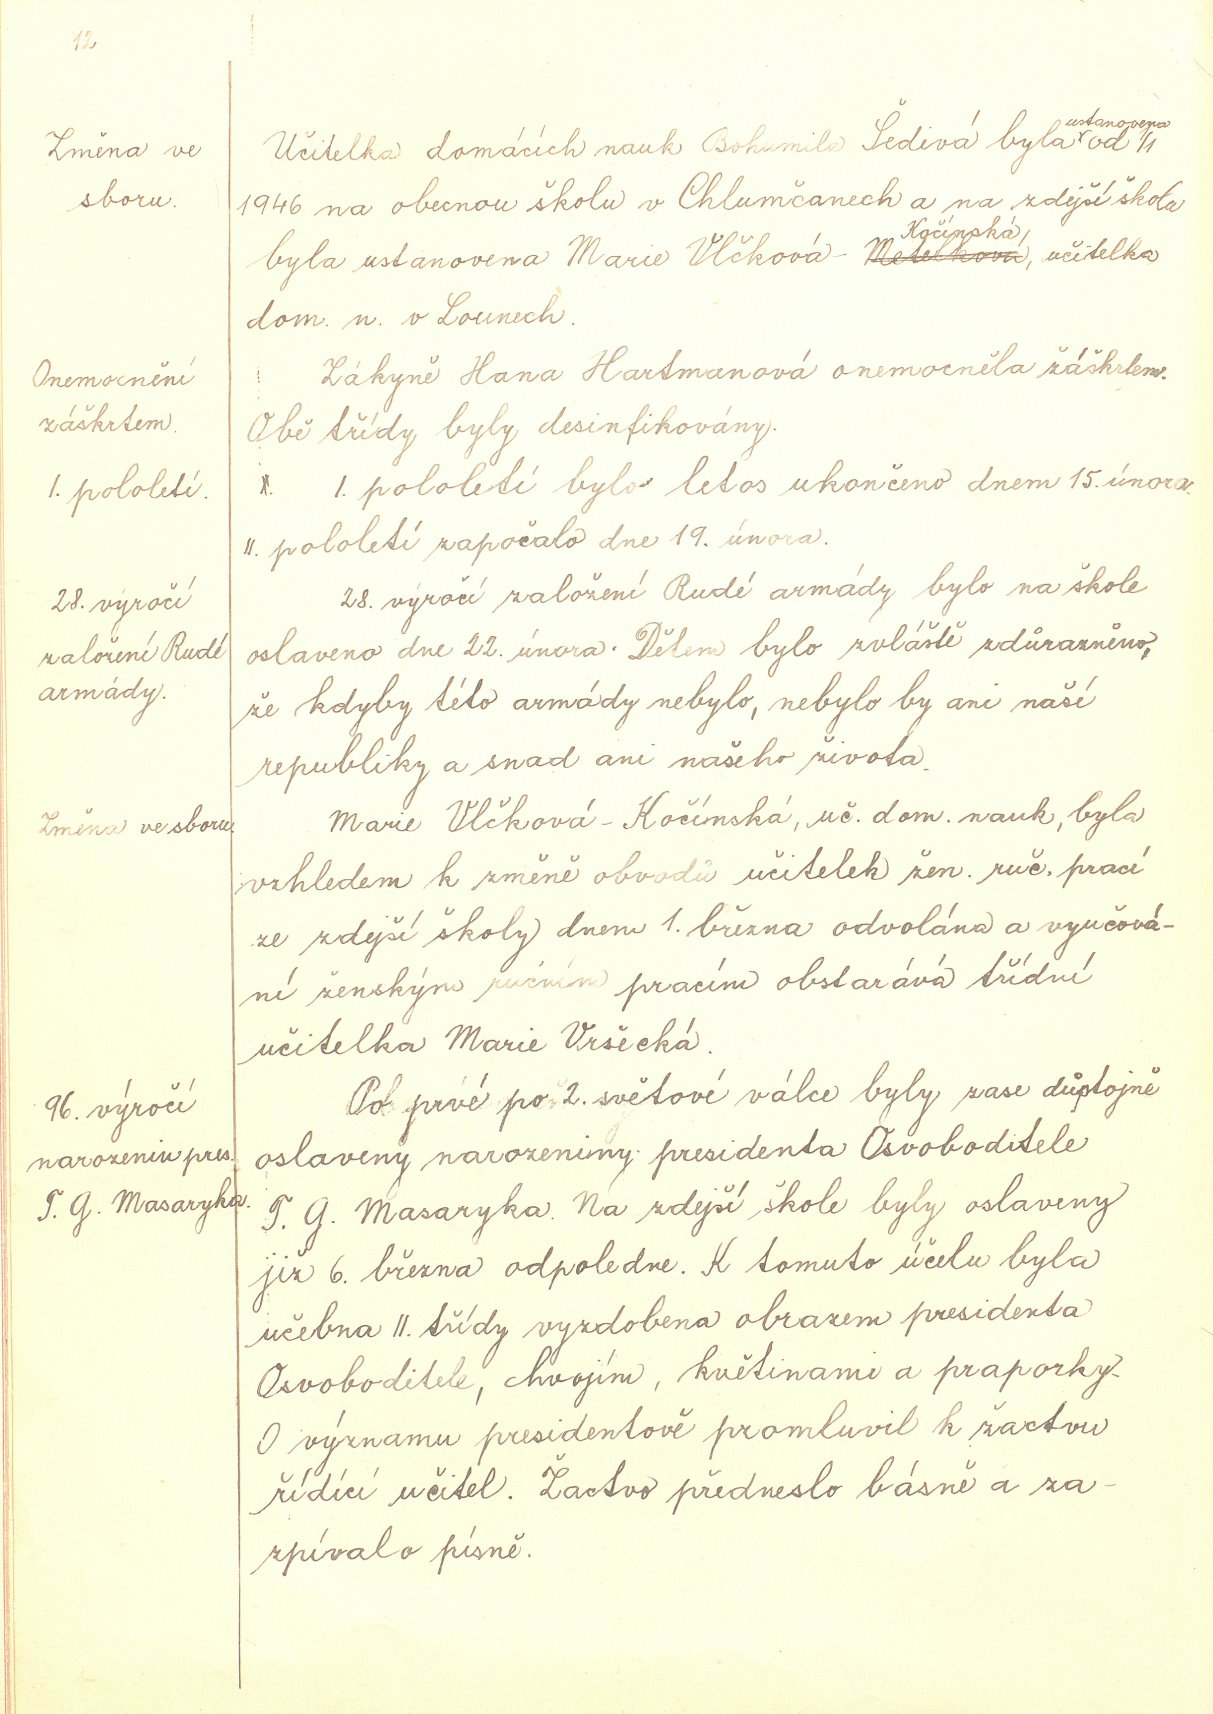 12
Změna ve
sboru.
Učitelka domácích nauk Bohumila Šedivá byla ustanovena od 1/1
1946 na obecnou školu v Chlumčanech a na zdejší školu
byla ustanovena Marie Vlčková - Metelková Kočínská, učitelka
dom. n. v Lounech.
Onemocnění
záškrtem.
Žákyně Hana Hartmanová onemocněla záškrtem.
Obě třídy byly desinfikovány.
1. pololetí.
1. pololetí bylo letos ukončeno dnem 15. února.
II. pololetí započalo dne 19. února.
28. výročí
založení Rudé
armády.
28. výročí založení Rudé armády bylo na škole
oslaveno dne 22. února. Dětem bylo zvláště zdůrazněno,
že kdyby této armády nebylo, nebylo by ani naší
republiky a snad ani našeho života.
Změna ve sboru.
Marie Vlčková - Kočínská, uč. dom. nauk, byla
vzhledem k změně obvodů učitelek žen. ruč. prací
ze zdejší školy dnem 1. března odvolána a vyučová-
ní ženským ručním pracím obstarává třídní
učitelka Marie Vršecká.
96. výročí
narozenin pres.
T. G. Masaryka.
Po prvé po 2. světové válce byly zase důstojně
oslaveny narozeniny presidenta Osvoboditele
T. G. Masaryka. Na zdejší škole byly oslaveny
již 6. března odpoledne. K tomuto účelu byla
učebna II. třídy vyzdobena obrazem presidenta
Osvoboditele, chvojím, květinami a praporky.
O významu presidentově promluvil k žactvu
řídící učitel. Žactvo předneslo básně a za-
zpívalo písně.